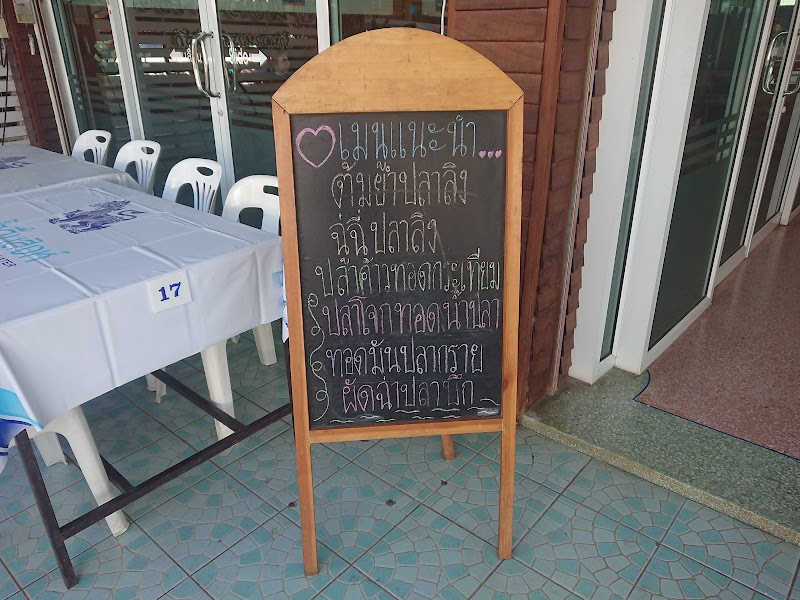 เมนูแนะนำ...
ต้มยำปลาลิง
ฉู่ฉี่ปลาลิง
ปลาค้าวทอดกระเทียม
ปลาโจกทอดน้ำปลา
ทอดมันปลากราย
ผัดฉ่าปลาบึก
17